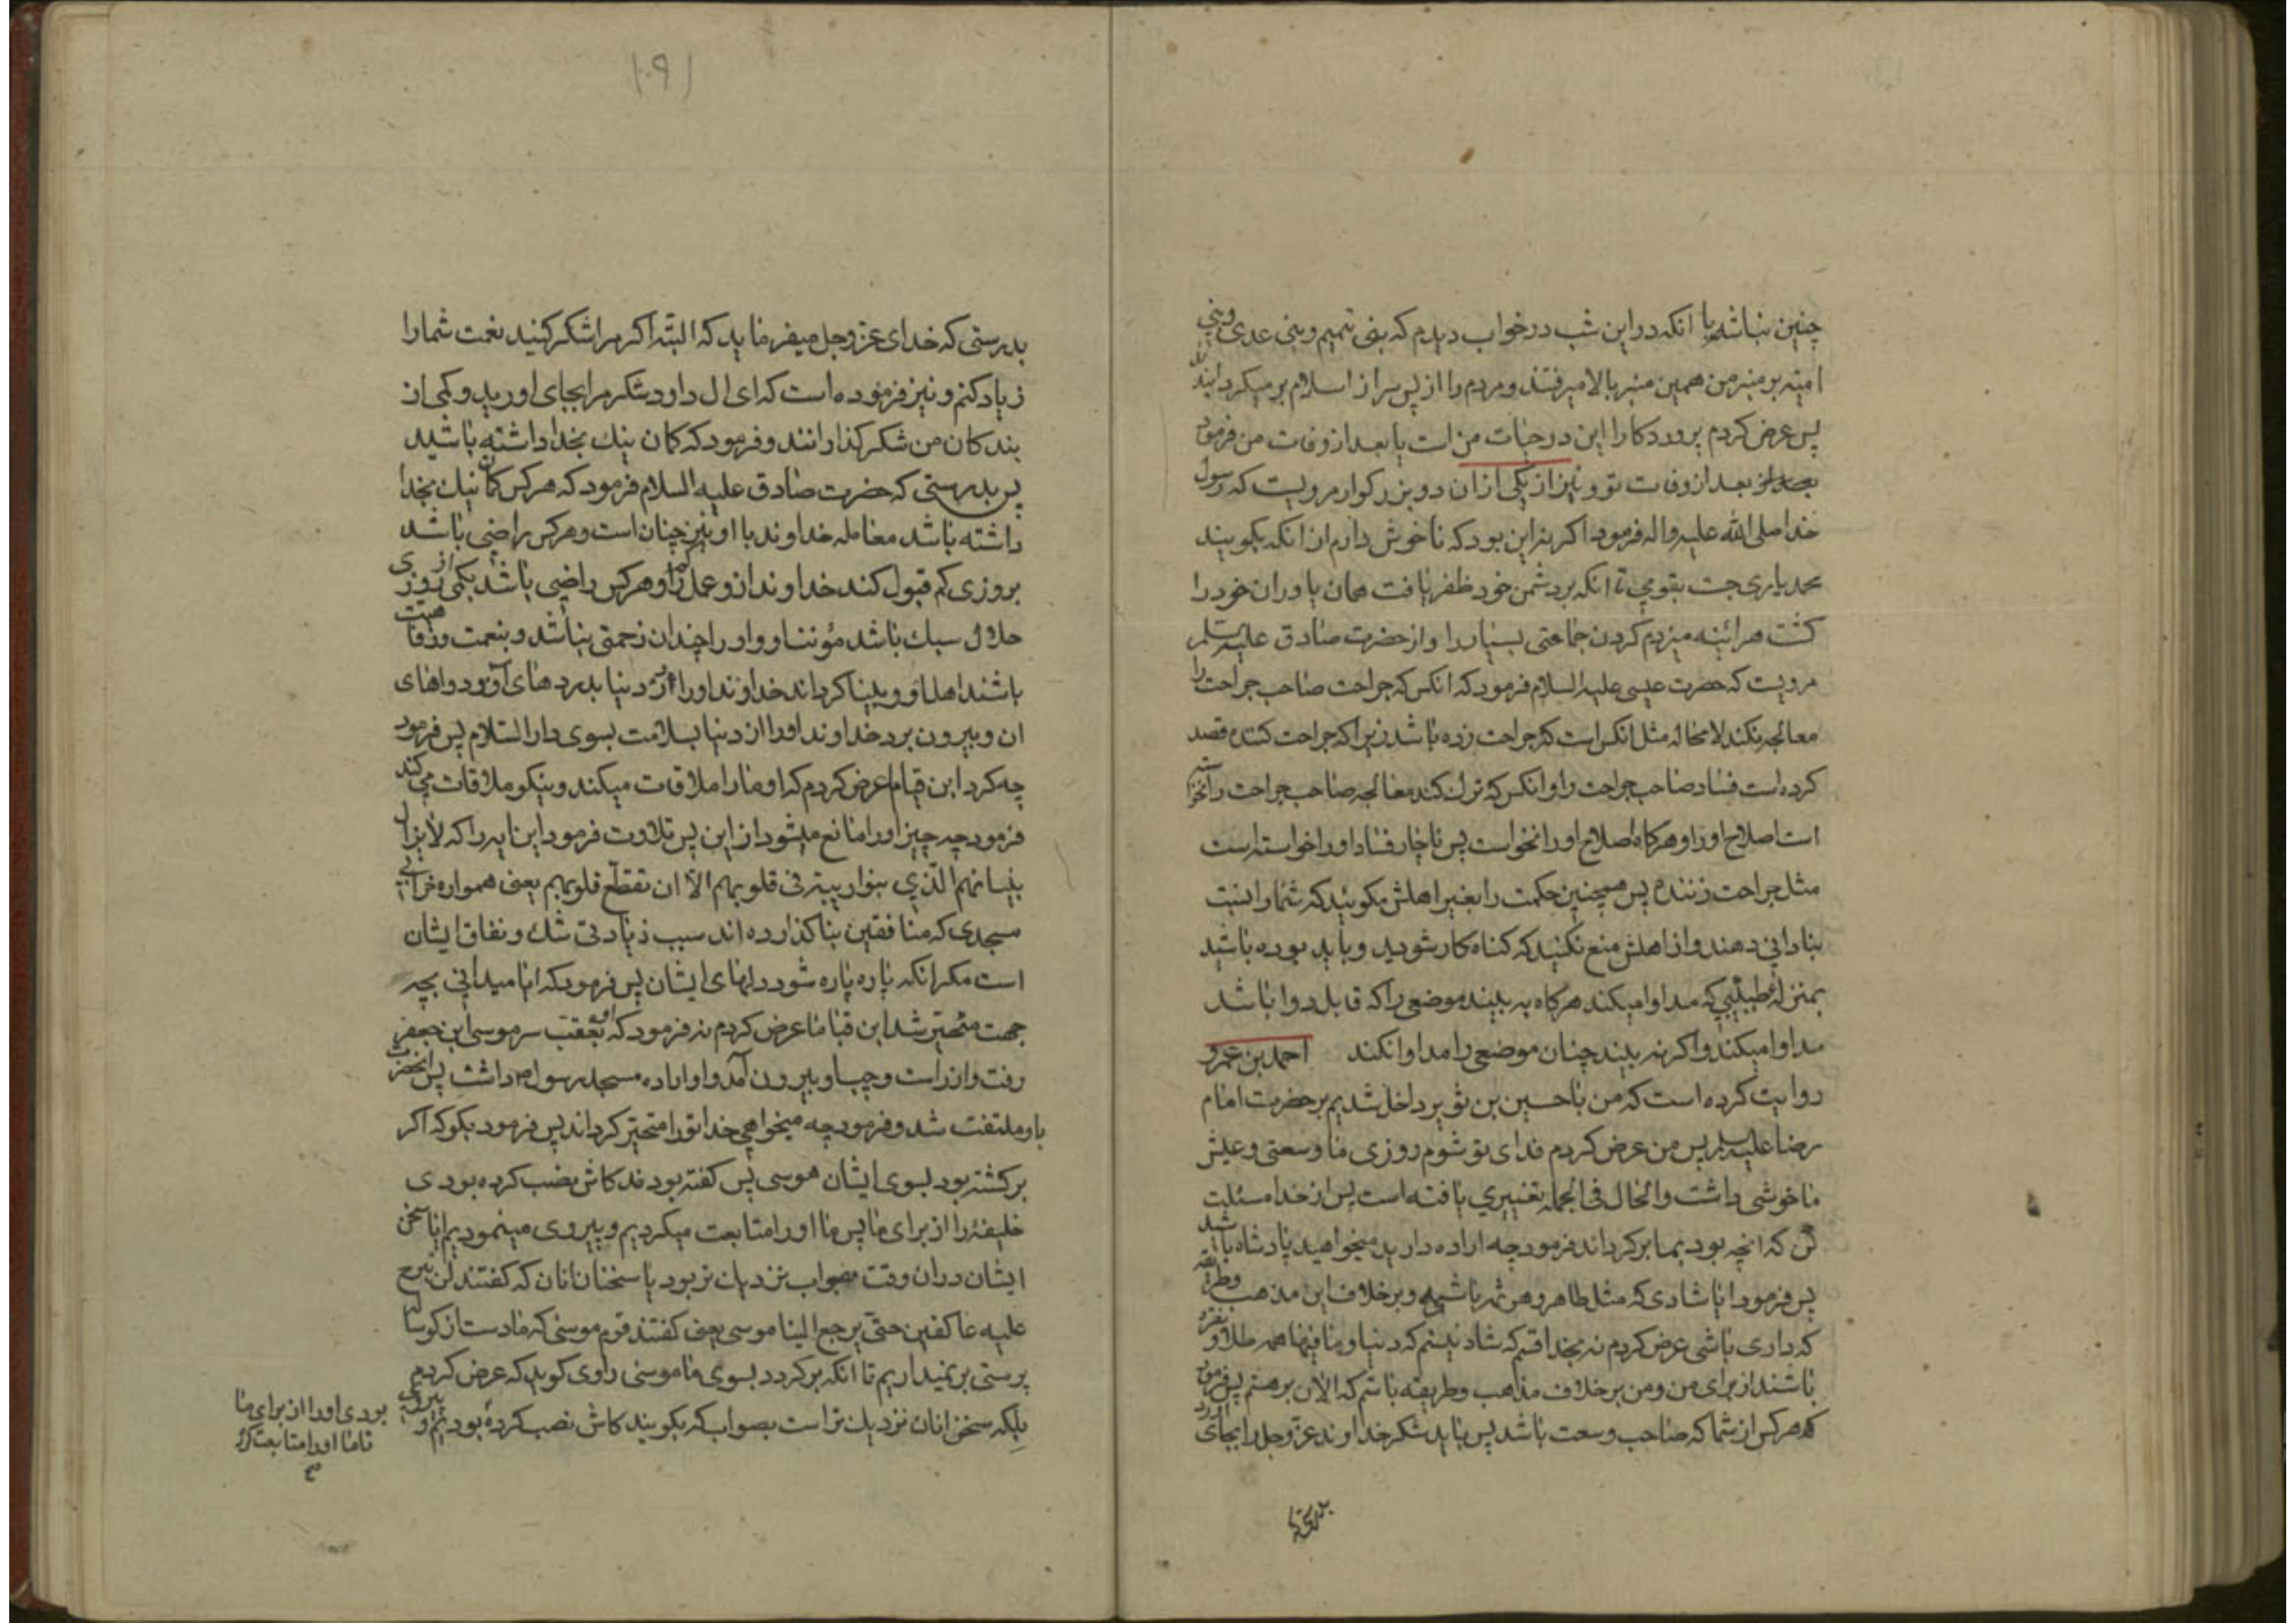 چنین نباشد با انکه در این شب در خواب دیدم که بنی تمیم و بنی عدی و بنی
امیّه بر منبر من همین منبر بالا میرفتند و مردم را از پس سر از اسلام بر میکردانند
پس عرض کردم پروردکارا این در حیات من است یا بعد از وفات من فرمود
بعد از وفات تو و نیز از یکی از ان دو بزرکوار مرویست که رسول
خدا صلی الله علیه واله فرمود اکر نه این بود که ناخوش دارم از انکه بکویند
محمد یاری جست بقومی تا انکه بر دشمن خود ظفر یافت همان یاوران خود را
کشت هرائینه میزدم کردن جماعتی بسیار را و از حضرت صادق علیه السلم
مرویست که حضرت عیسی علیه السلام فرمود که انکس که جراحت صاحب جراحت را
معالجه نکند لا محاله مثل انکس است که جراحت زده باشد زیرا که جراحت کننده قصد
کرده است فساد صاحب جراحت را و انکس که ترک کند معالجه صاحب جراحت را نخواسته
است اصلاح او را و هرکاه اصلاح او را نخواست پس ناچار فساد او را خواسته است
مثل جراحت زننده پس همچنین حکمت را بغیر اهلش مکوئید که شما را نسبت
بنادانی دهند و از اهلش منع نکنید که کناه کار شوید و باید بوده باشید
بمنزلهٔ طبیبی که مداوا میکند هرکاه به بیند موضعی را که قابل دوا باشد
مداوا میکند و اکر نه بیند چنان موضعی را مداوا نکند احمد بن عمرو
روایت کرده است که من با حسین بن ثویر داخل شدیم بر حضرت امام
رضا علیه السلم پس من عرض کردم فدای تو شوم روزی ما وسعتی و عیش
ما خوشی داشت والحال فی الجمله تغییری یافته است پس از خدا مسئلت
کن که انچه بود بما بر کرداند فرمود چه اراده دارید میخواهید پادشاه باشید
پس فرمود ایا شادی که مثل طاهر و هرثمه باشی و بر خلاف این مذهب و طریقه
که داری باشی عرض کردم نه بخدا قسم که شاد نیستم که دنیا و ما فیها همه طلا و نقره
باشند از برای من و من بر خلاف مذاهب و طریقه باشم که الان بر هستم پس فرمود
که هر کس از شما که صاحب وسعت باشد پس باید شکر خداوند عزّ و جل را بجای اورد
بدرستی
۱۰۹
بدرستی که خدای عزّ و جل میفرماید که البتّه اکر مرا شکر کنید نعمت شما را
زیاد کنم و نیز فرموده است که ای ال داود شکر مرا بجای اورید و کمی از
بندکان من شکر کذارانند و فرمود که کمان نیک بخدا داشته باشید
پس بدرستی که حضرت صادق علیه السلام فرمود که هر کس کمان نیک بخدا
داشته باشد معامله خداوند با او نیز چنان است و هر کس راضی باشد
بروزی کم قبول کند خداوند از و عمل کم را و هر کس راضی باشد بکمی از روزی
حلال سبک باشد مؤنت او و او را چندان زحمتی نباشد و بنعمت و رفاهیت
باشند اهل او و بینا کرداند خداوند او را در دنیا بدردهای او و دواهای
ان و بیرون برد خداوند او را از دنیا بسلامت بسوی دار السّلام پس فرمود
چه کرد ابن قیاما عرض کردم که او ما را ملاقات میکند و نیکو ملاقات می کند
فرمود چه چیز او را مانع میشود از این پس تلاوت فرمود این ایه را که لا یزال
بنیانهم الّذی بنوا ریبة فی قلوبهم الّا ان تقطّع قلوبهم یعنی همواره خرابی
مسجدی که منافقین بنا کذارده اند سبب زیادتی شک و نفاق ایشان
است مکر انکه پاره پاره شود دلهای ایشان پس فرمود که ایا میدانی بچه
جهت متحیّر شد ابن قیاما عرض کردم نه فرمود که او بعقب سر موسی ابن جعفر
رفت و از راست و چپ او بیرون آمد و او اراده مسجد رسول ص داشت پس انحضرت
باو ملتفت شد و فرمود چه میخواهی خدا تو را متحیّر کرداند پس فرمود بکو که اکر
بر کشته بود بسوی ایشان موسی پس کفته بودند کاش نصب کرده بودی
خلیفهٔ را از برای ما پس ما او را متابعت میکردیم و پیروی مینمودیم ایا سخن
ایشان در ان وقت بصواب نزدیک تر بود یا سخنان انان که کفتند لن نبرح
علیه عاکفین حتّی یرجع الینا موسی یعنی کفتند قوم موسی که ما دست از کوساله
پرستی بر نمیداریم تا انکه بر کردد بسوی ما موسی راوی کوید که عرض کردم
بلکه سخن انان نزدیک تر است بصواب که بکویند کاش نصب کرده بودیم و پیروی
بودی او را از برای ما
تا ما او را متابعت کرده